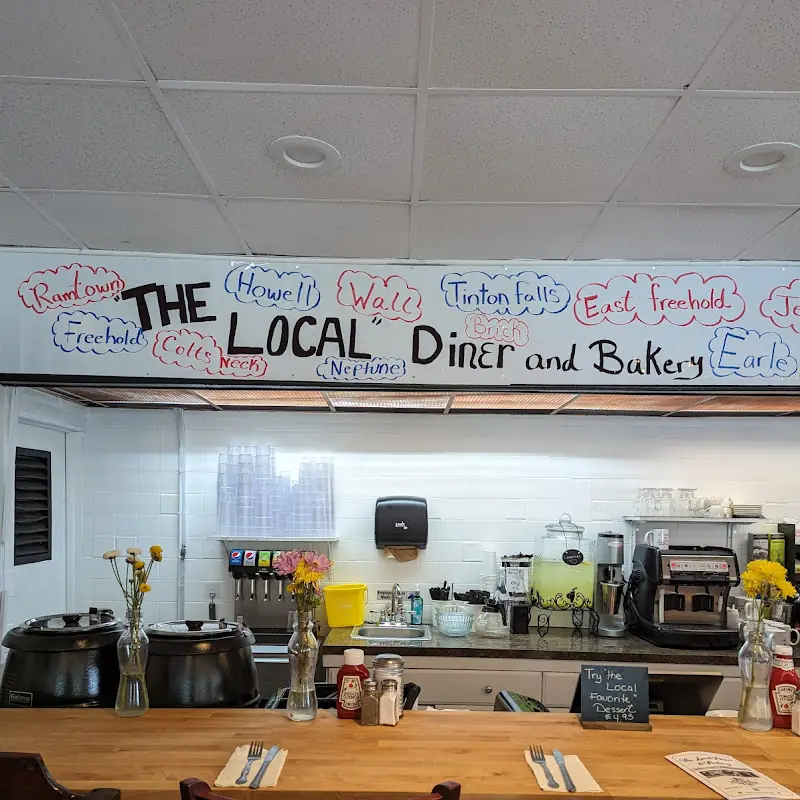 Ramtown
Howell
Wall
Tinton Falls
East freehold
"THE
Freehold
Colts Neck
LOCAL"
Neptune
Brick
Diner and Bakery
Earle
Try "the
Local
Favorite"
Dessert
$4.95